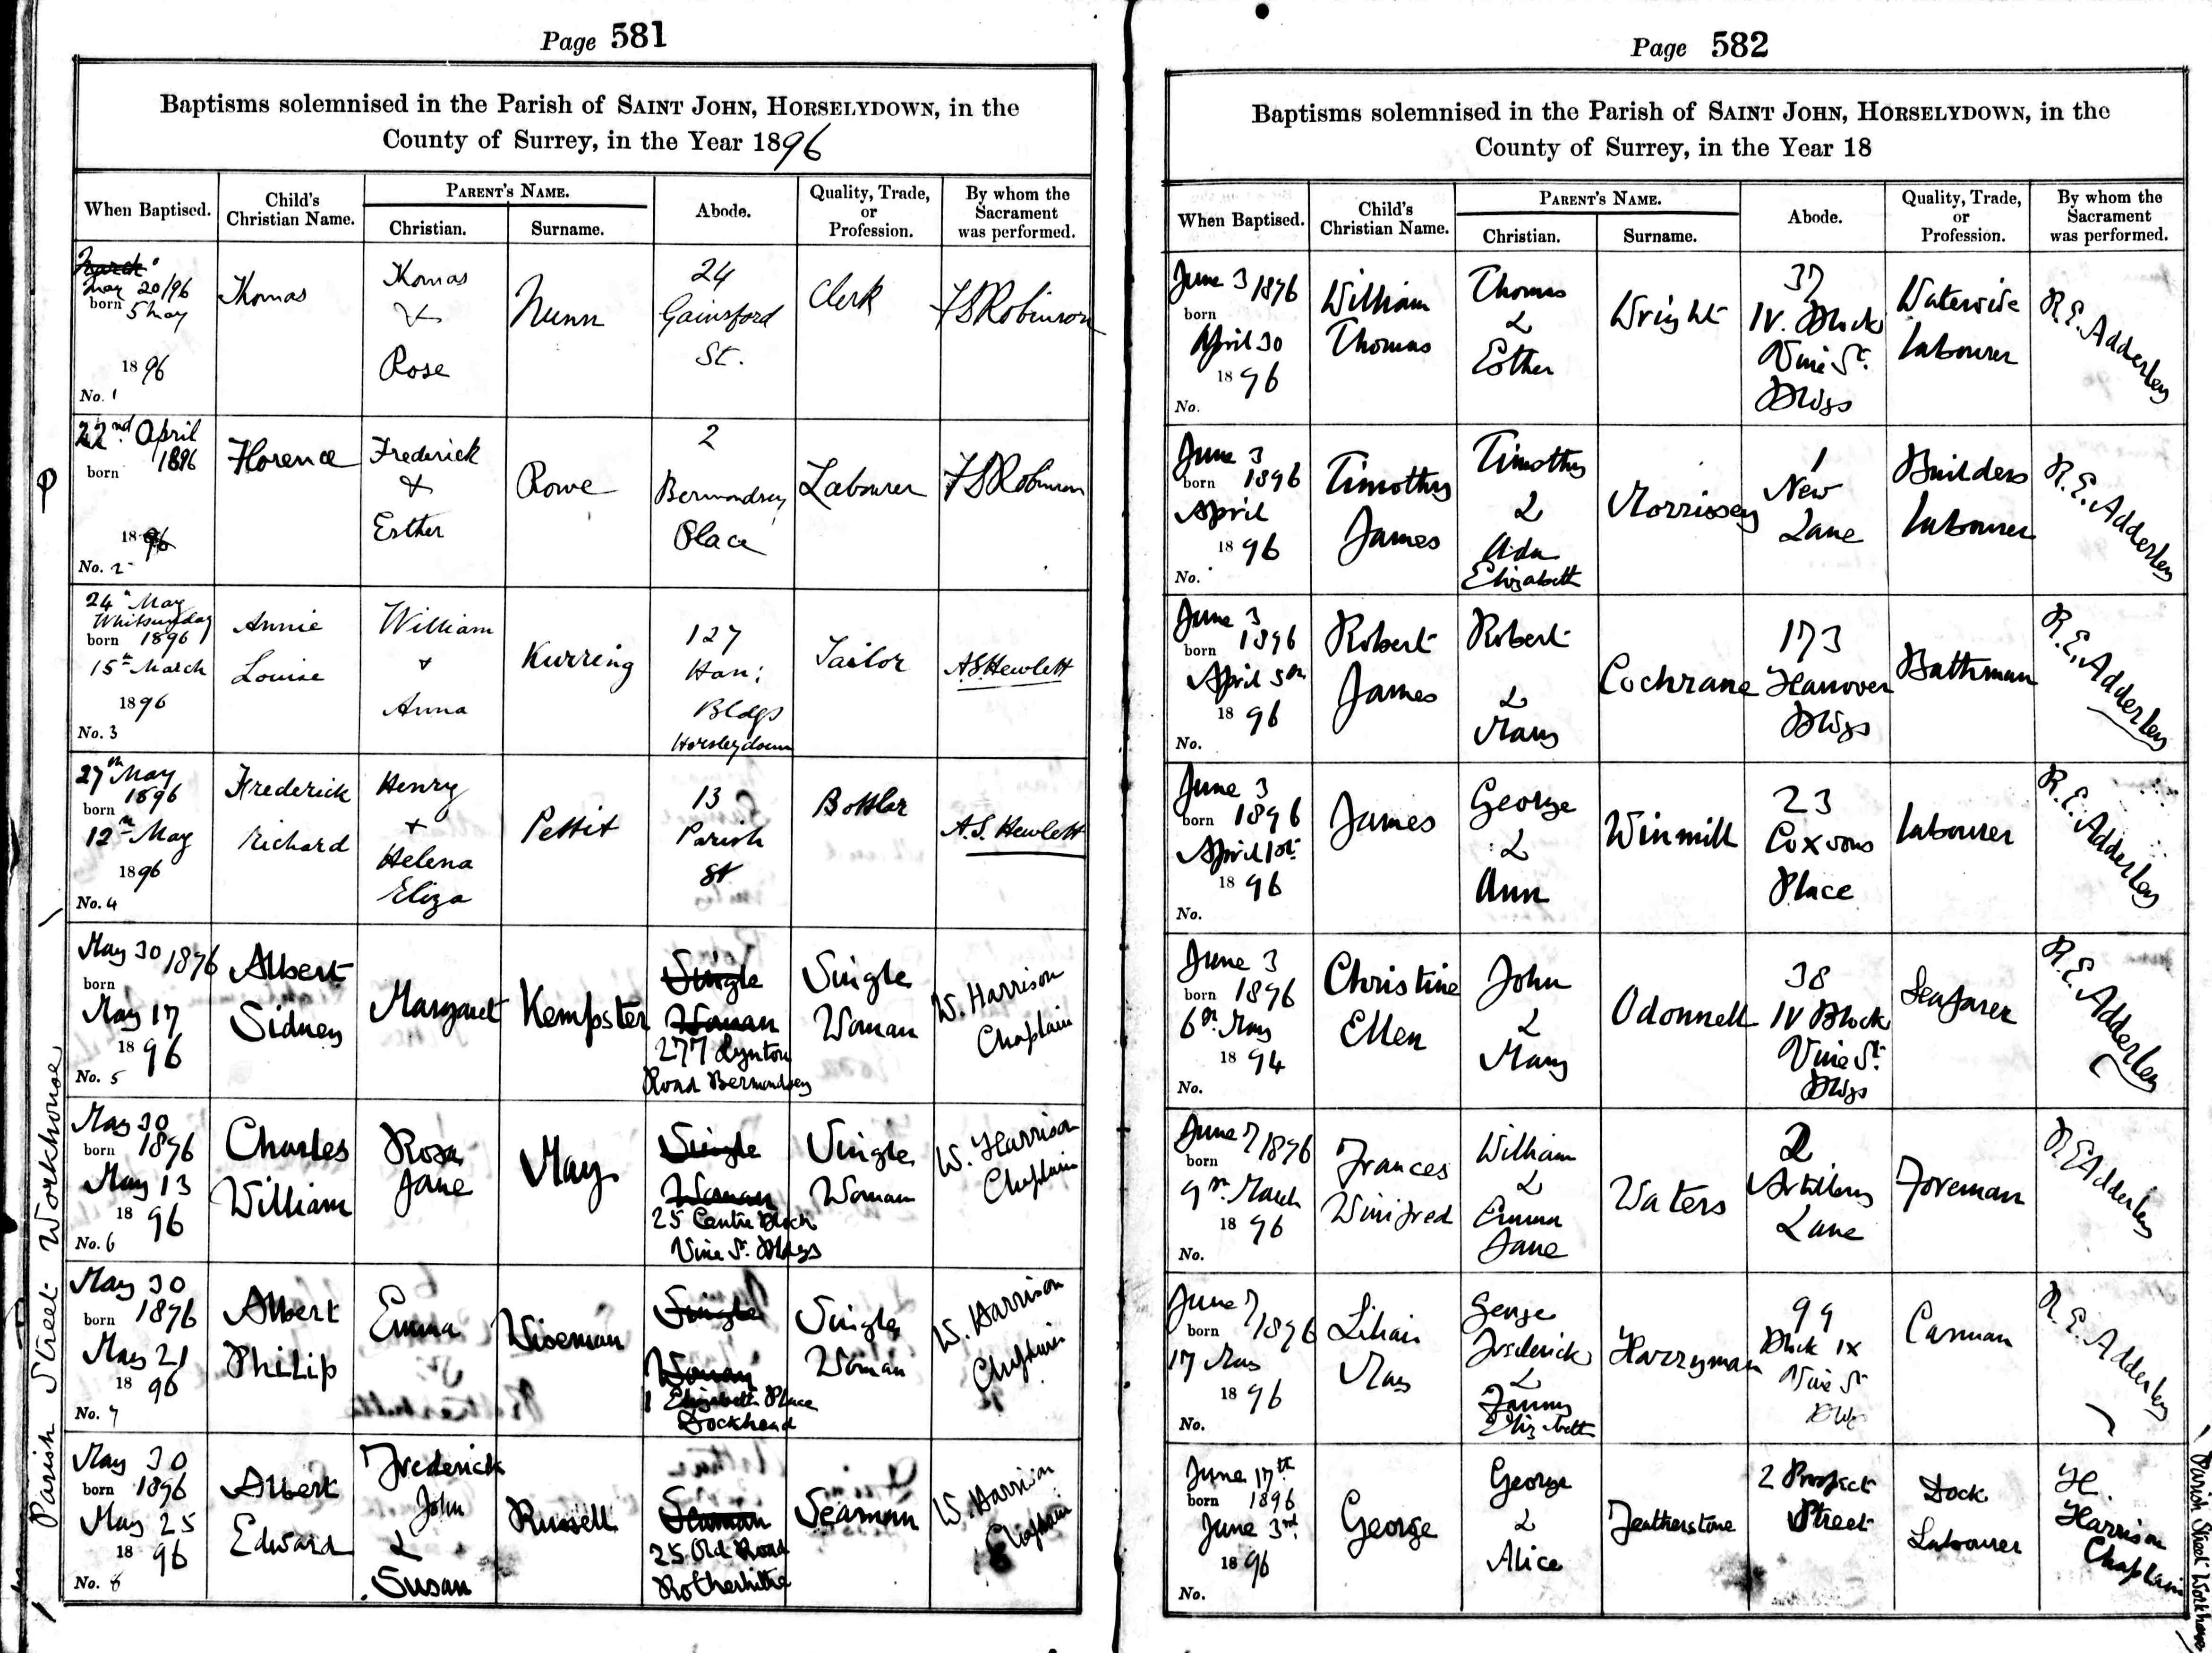 Page 581
Baptisms solemnised in the Parish of SAINT JOHN, HORSELYDOWN, in the
County of Surrey, in the Year 1896
When Baptised.
Child's
Christian Name.
PARENT'S NAME.
Christian.
Surname.
Abode.
Quality, Trade,
or
Profession.
By whom the
Sacrament
was performed.
March
May 20/96
born 5 May
1896
No. 1
Thomas
Thomas
&
Rose
Nunn
24
Gainsford
St.
Clerk
FSRobinson
22nd April
1896
born
1896
No. 2
Florence
Frederick
+
Esther
Rowe
2
Bermondsey
Place
Labourer
FSRobinson
24th May
Whitsunday
born 1896
15th March
1896
No. 3
Annie
Louise
William
+
Anna
Kurring
127
Han:
Bldgs
Horsleydown
Tailor
ASHewlett
27th May
1896
born
12th May
1896
No. 4
Frederick
Richard
Henry
+
Helena
Eliza
Pettit
13
Parish
St
Bottler
A.S. Hewlett
May 30 1896
born
May 17
1896
No. 5
Albert
Sidney
Margaret
Kempster
Single
Woman
277 Lynton
Road Bermondsey
Single
Woman
W. Harrison
Chaplain
May 30
born 1896
May 13
1896
No. 6
Charles
William
Rosa
Jane
May
Single
Woman
25 Centre Block
Vine St. Bldgs
Single
Woman
W. Harrison
Chaplain
May 30
born 1896
May 21
1896
No. 7
Albert
Philip
Emma
Wiseman
Single
Woman
1 Elizabeth Place
Dockhead
Single
Woman
W. Harrison
Chaplain
May 30
born 1896
May 25
1896
No. 8
Albert
Edward
Frederick
John
&
Susan
Russell
Seaman
25 Old Road
Rotherhithe
Seaman
W. Harrison
Chaplain
Parish Street Workhouse
Page 582
Baptisms solemnised in the Parish of SAINT JOHN, HORSELYDOWN, in the
County of Surrey, in the Year 18
When Baptised.
Child's
Christian Name.
PARENT'S NAME.
Christian.
Surname.
Abode.
Quality, Trade,
or
Profession.
By whom the
Sacrament
was performed.
June 3 1896
born
April 30
1896
No.
William
Thomas
Thomas
&
Esther
Wright
37
IV. Block
Vine St.
Bldgs
Waterside
labourer
R.E. Adderley
June 3
born 1896
April
1896
No.
Timothy
James
Timothy
&
Ada
Elizabeth
Morrissey
1
New
Lane
Builders
labourer
R.E. Adderley
June 3
born 1896
April 5th
1896
No.
Robert
James
Robert
&
Mary
Cochrane
173
Hanover
Bldgs
Bathman
R.E. Adderley
June 3
born 1896
April 1st
1896
No.
James
George
&
Ann
Winmill
23
Coxsons
Place
labourer
R.E. Adderley
June 3
born 1896
6th May
1894
No.
Christine
Ellen
John
&
Mary
Odonnell
38
IV Block
Vine St.
Bldgs
Seafarer
R.E. Adderley
June 7 1896
born
9th March
1896
No.
Frances
Winifred
William
&
Emma
Jane
Waters
2
Artillery
Lane
Foreman
R E Adderley
June 7 1896
born
17 May
1896
No.
Lilian
May
George
Frederick
&
Fanny
Elizabeth
Harryman
99
Block IX
Vine St
Bldgs
Carman
R.E. Adderley
June 17th
born 1896
June 3rd
1896
No.
George
George
&
Alice
Featherstone
2 Prospect
Street
Dock
Labourer
H.
Harrison
Chaplain
Parish Street Workhouse